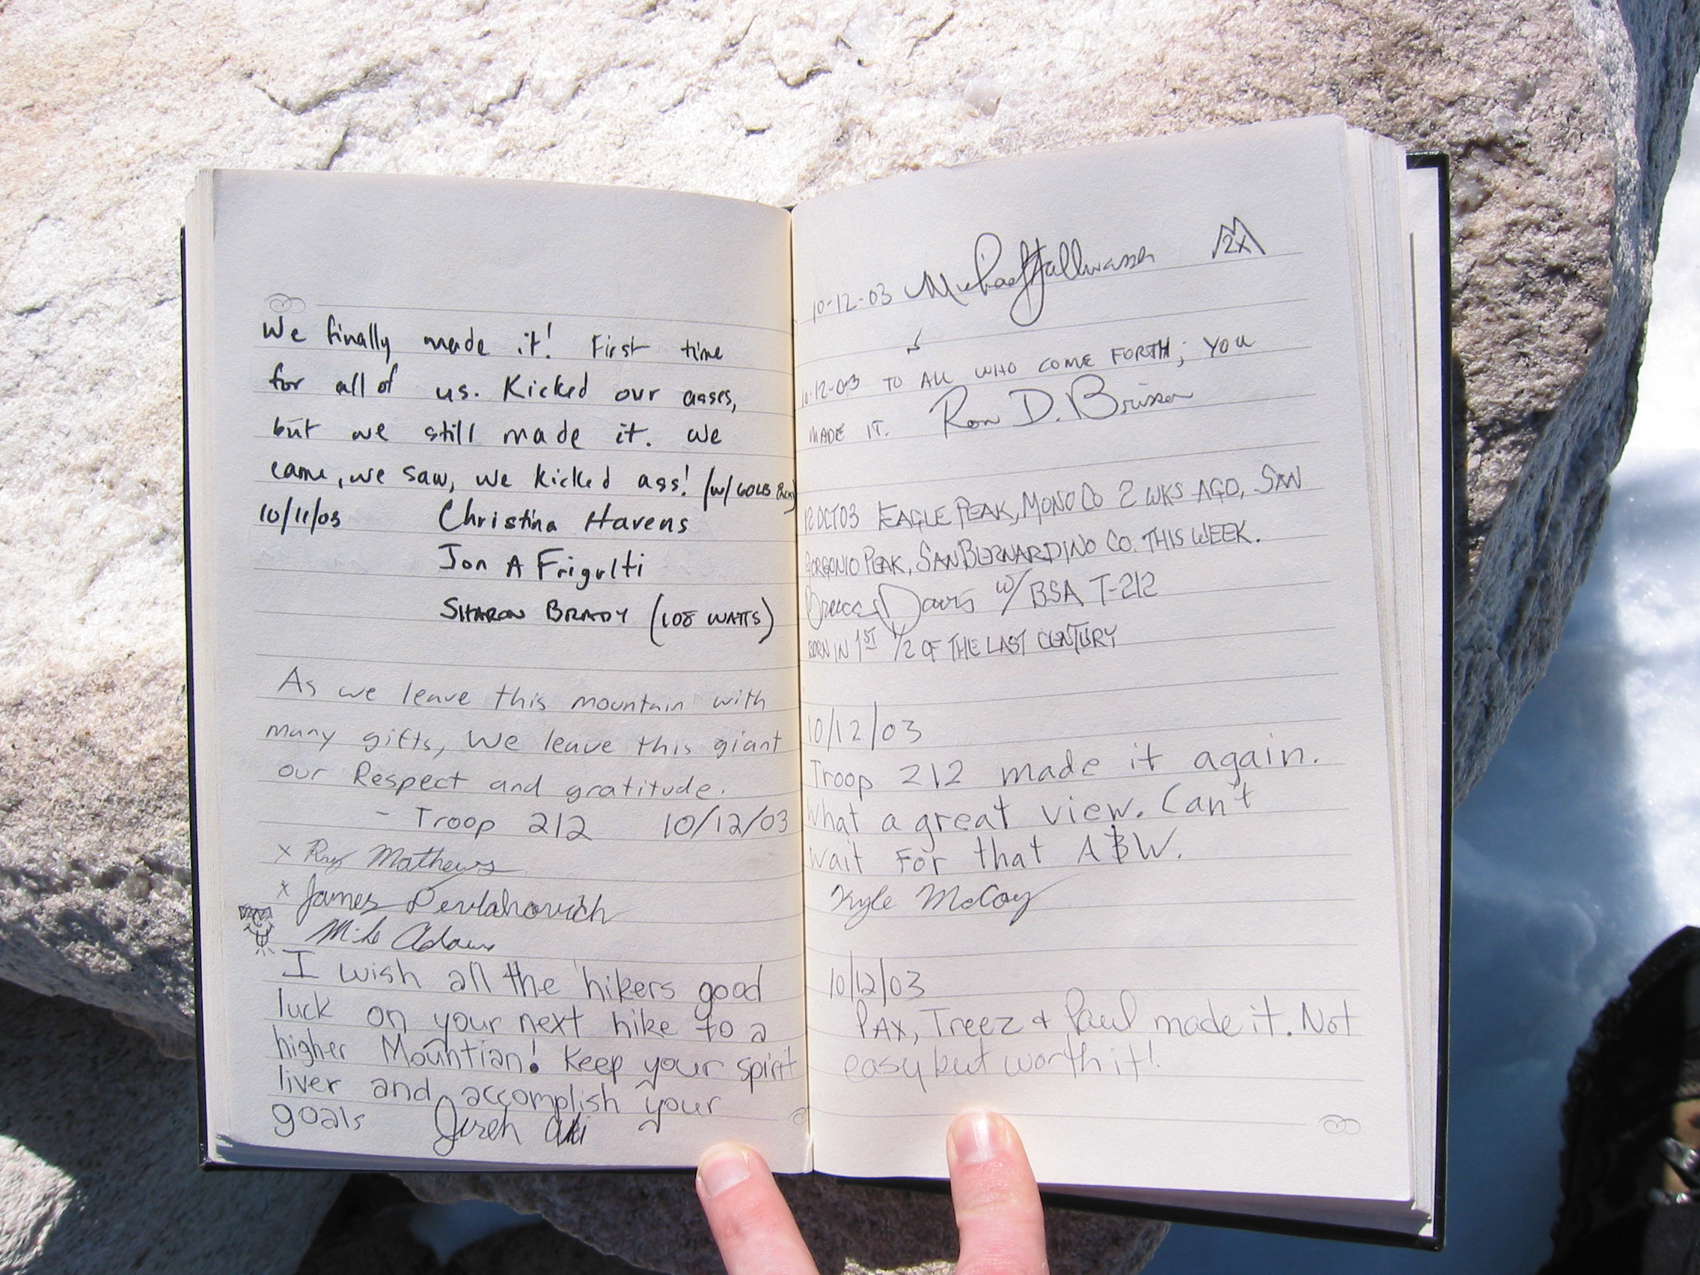 We finally made it! First time
for all of us. Kicked our asses,
but we still made it. We
came, we saw, we kicked ass! (w/ GOLD
10/11/03 Christina Havens
Jon A Frigulti
SHARON BRADY (108 WATTS)
As we leave this mountain with
many gifts, We leave this giant
our Respect and gratitude.
- Troop 212 10/12/03
x Mathews
x James
Mike Adams
I wish all the hikers good
luck on your next hike to a
higher Mountian! Keep your spirit
liver and accomplish your
goals
10-12-03 Michael 2X
10-12-03 TO ALL WHO COME FORTH; YOU
MADE IT. Ron D. Brisson
12 OCT 03 EAGLE PEAK, MONO CO 2 WKS AGO, SAN
GORGONIO PEAK, SAN BERNARDINO CO. THIS WEEK.
Davis w/ BSA T-212
BORN IN 1ST 1/2 OF THE LAST CENTURY
10/12/03
Troop 212 made it again.
What a great view. Can't
wait for that ABW.
Kyle McCoy
10/12/03
PAX, Treez + Paul made it. Not
easy but worth it!